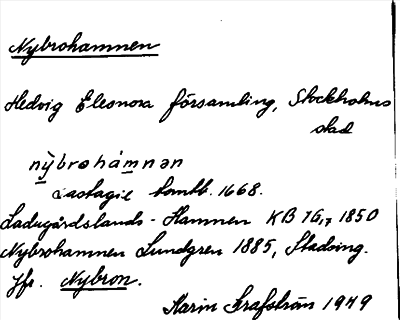 Nybrohamnen
Hedvig Eleonora församling, Stockholms
stad
nỳbrohámnən
tomtb. 1668.
Ladugårdslands-Hamnen KB 16,7 1850
Nybrohamnen Lundgren 1885, Stadsing.
Jfr. Nybron.
Karin Grafström 1949